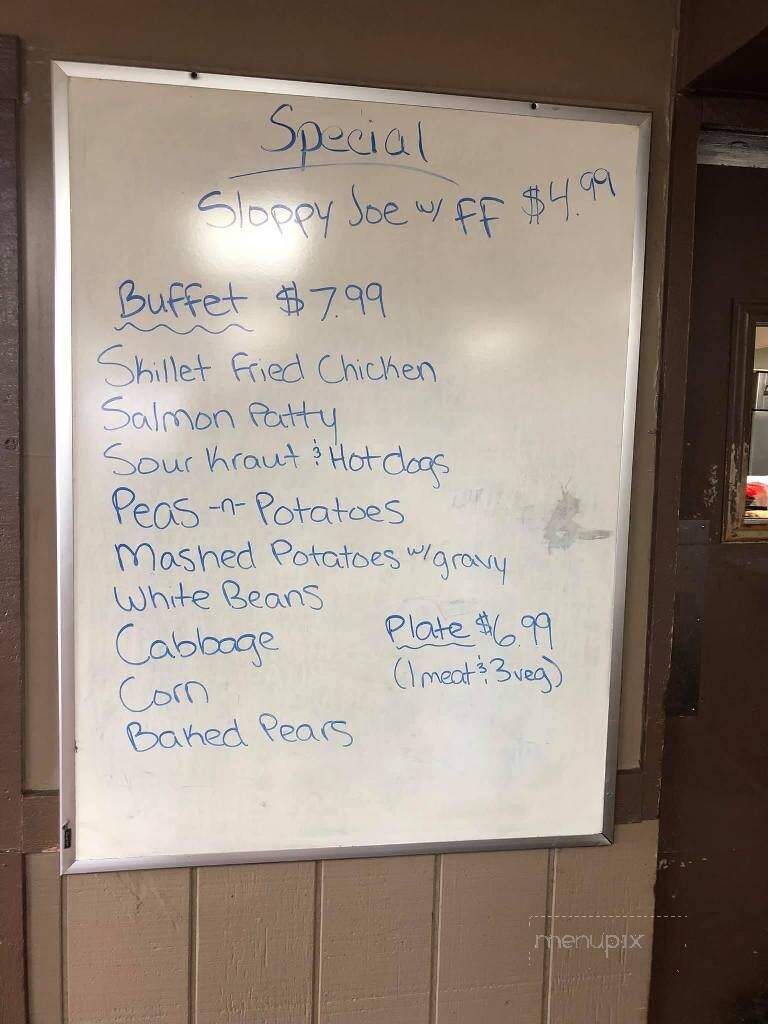 Special
Sloppy Joe w/ FF $4.99
Buffet $7.99
Skillet Fried Chicken
Salmon Patty
Sour Kraut & Hot dogs
Peas -n- Potatoes
Mashed Potatoes w/ gravy
White Beans
Cabbage
Corn
Baked Pears
Plate $6.99
(1 meat & 3 veg)
menupix